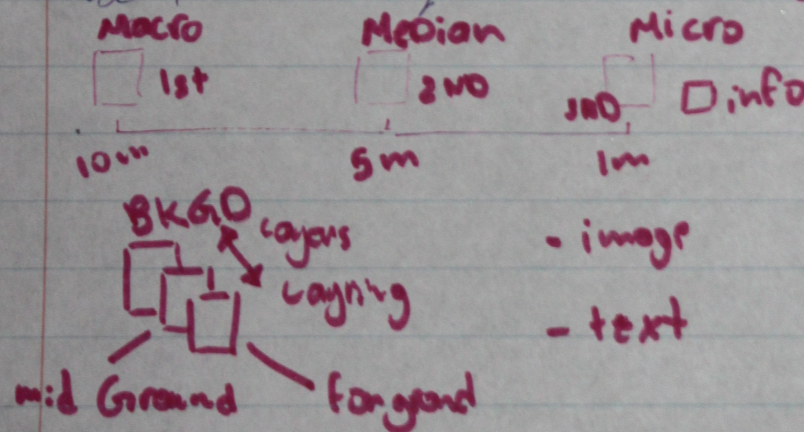 Macro Median Micro
1st 2ND 3RD info
10m 5m 1m
BKGD
Layers
- image
Layning
- text
mid Ground forground